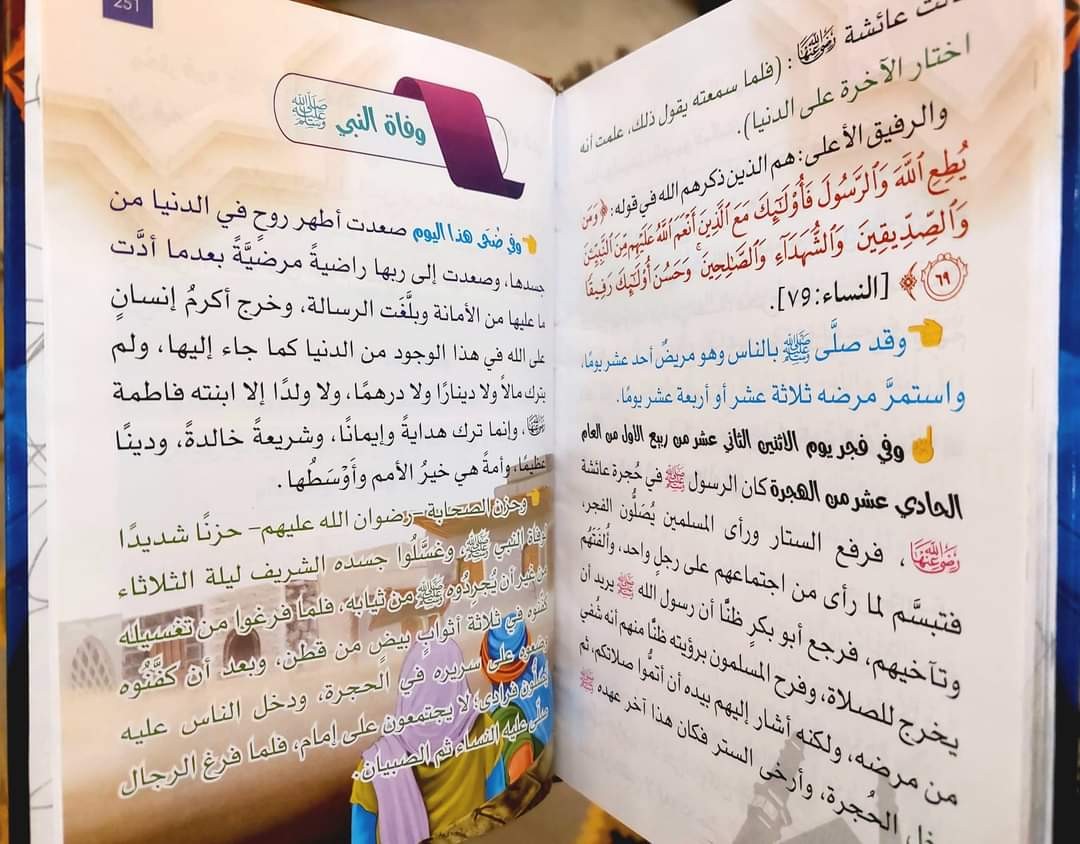 عائشة رضي الله عنها : (فلما سمعته يقول ذلك، علمت أنه
اختار الآخرة على الدنيا).
والرفيق الأعلى: هم الذين ذكرهم الله في قوله: ﴿وَمَن
يُطِعِ ٱللَّهَ وَٱلرَّسُولَ فَأُوْلَٰٓئِكَ مَعَ ٱلَّذِينَ أَنْعَمَ ٱللَّهُ عَلَيْهِم مِّنَ ٱلنَّبِيِّـۧنَ
وَٱلصِّدِّيقِينَ وَٱلشُّهَدَآءِ وَٱلصَّٰلِحِينَۚ وَحَسُنَ أُوْلَٰٓئِكَ رَفِيقًا
٦٩﴾ [النساء: ٧٩].
وقد صلَّى ﷺ بالناس وهو مريضٌ أحد عشر يومًا،
واستمرَّ مرضه ثلاثة عشر أو أربعة عشر يومًا.
وفي فجر يوم الاثنين الثاني عشر من ربيع الأول من العام
الحادي عشر من الهجرة كان الرسول ﷺ في حُجرة عائشة
رضي الله عنها ، فرفع الستار ورأى المسلمين يُصَلُّون الفجر،
فتبسَّم لما رأى من اجتماعهم على رجلٍ واحد، وأُلفَتَهُم
وتآخيهم، فرجع أبو بكرٍ ظنًّا أن رسول الله ﷺ يريد أن
يخرج للصلاة، وفرح المسلمون برؤيته ظنًّا منهم أنه شُفي
من مرضه، ولكنه أشار إليهم بيده أن أتمُّوا صلاتكم، ثم
الحُجرة، وأرخى الستر فكان هذا آخر عهده ﷺ
251
وفاة النبي ﷺ
وفي ضُحَى هذا اليوم صعدت أطهر روحٍ في الدنيا من
جسدها، وصعدت إلى ربها راضيةً مرضيَّةً بعدما أدَّت
ما عليها من الأمانة وبلَّغَت الرسالة، وخرج أكرمُ إنسانٍ
على الله في هذا الوجود من الدنيا كما جاء إليها، ولم
يترك مالاً ولا دينارًا ولا درهمًا، ولا ولدًا إلا ابنته فاطمة
رضي الله عنها، وإنما ترك هدايةً وإيمانًا، وشريعةً خالدةً، ودينًا
عظيمًا، وأمةً هي خيرُ الأمم وأَوْسَطُها.
وحزن الصحابة -رضوان الله عليهم- حزنًا شديدًا
لوفاة النبي ﷺ، وغسَّلُوا جسده الشريف ليلة الثلاثاء
من غير أن يُجردُوه ﷺ من ثيابه، فلما فرغوا من تغسيله
كفَّنوه في ثلاثة أثوابٍ بيضٍ من قطن، وبعد أن كفَّنُوه
وضعوه على سريره في الحجرة، ودخل الناس عليه
يُصلُّون فرادى؛ لا يجتمعون على إمام، فلما فرغ الرجال
صلَّى عليه النساء ثم الصبيان.